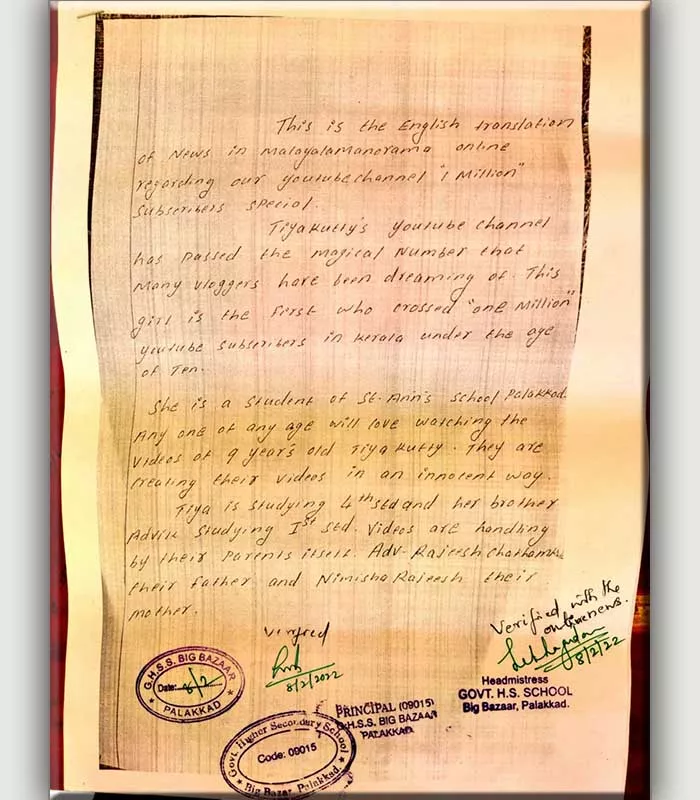 This is the English translation
of News in Malayalamanorama online
regarding our youtubechannel "1 Million"
Subscribers special.
Tiyakutty's youtube channel
has passed the magical Number that
many vloggers have been dreaming of. This
girl is the first who crossed "one Million"
youtube subscribers in kerala under the age
of Ten.
She is a student of St. Ann's School Palakkad.
Any one of any age will love watching the
videos of 9 year's old Tiya kutty. They are
creating their videos in an innocent way.
Tiya is studying 4th std and her brother
Advik studying Ist std. Videos are handling
by their Parents itself. Adv. Rajeesh
their father and Nimisha Rajeesh their
mother.
Verified
8/2/2022
Verified with the
online news.
8/2/22
Headmistress
GOVT. H.S. SCHOOL
Big Bazaar, Palakkad.
G.H.S.S. BIG BAZAAR
Date: 8/2
PALAKKAD
PRINCIPAL (09015)
G.H.S.S. BIG BAZAAR
PALAKKAD
Govt. Higher Secondary School
Code: 09015
Big Bazar, Palakkad.